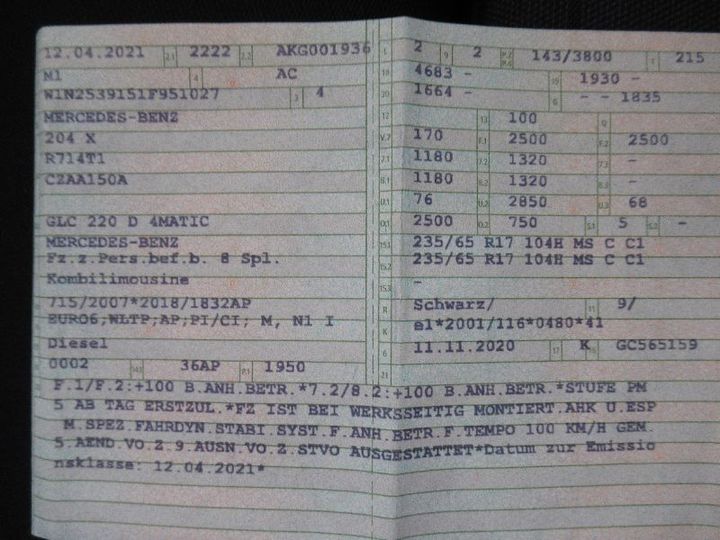 12.04.2021 2.1 2222 2.2 AKG001936
M1 4 AC
W1N2539151F951027 3 4
MERCEDES-BENZ
204 X
R714T1
CZAA150A
GLC 220 D 4MATIC
MERCEDES-BENZ
Fz.z.Pers.bef.b. 8 Spl.
Kombilimousine
715/2007*2018/1832AP
EURO6;WLTP;AP;PI/CI; M, N1 I
Diesel
0002 14.1 36AP P.1 1950
L 2 9 2 P.2 P.4 143/3800 T 215
18 4683 - 19 1930 -
20 1664 - G - - 1835
12 13 100 Q
V.7 170 F.1 2500 F.2 2500
7.1 1180 7.2 1320 7.3 -
8.1 1180 8.2 1320 8.3 -
U.1 76 U.2 2850 U.3 68
O.1 2500 O.2 750 S.1 5 S.2 -
15.1 235/65 R17 104H MS C C1
15.2 235/65 R17 104H MS C C1
15.3 -
R Schwarz/ 11 9/
K e1*2001/116*0480*41
6 11.11.2020 17 K 16 GC565159
21
F.1/F.2:+100 B.ANH.BETR.*7.2/8.2:+100 B.ANH.BETR.*STUFE PM
5 AB TAG ERSTZUL.*FZ IST BEI WERKSSEITIG MONTIERT.AHK U.ESP
M.SPEZ.FAHRDYN.STABI.SYST.F.ANH.BETR.F.TEMPO 100 KM/H GEM.
5.AEND.VO.Z.9.AUSN.VO.Z.STVO AUSGESTATTET*Datum zur Emissio
nsklasse: 12.04.2021*